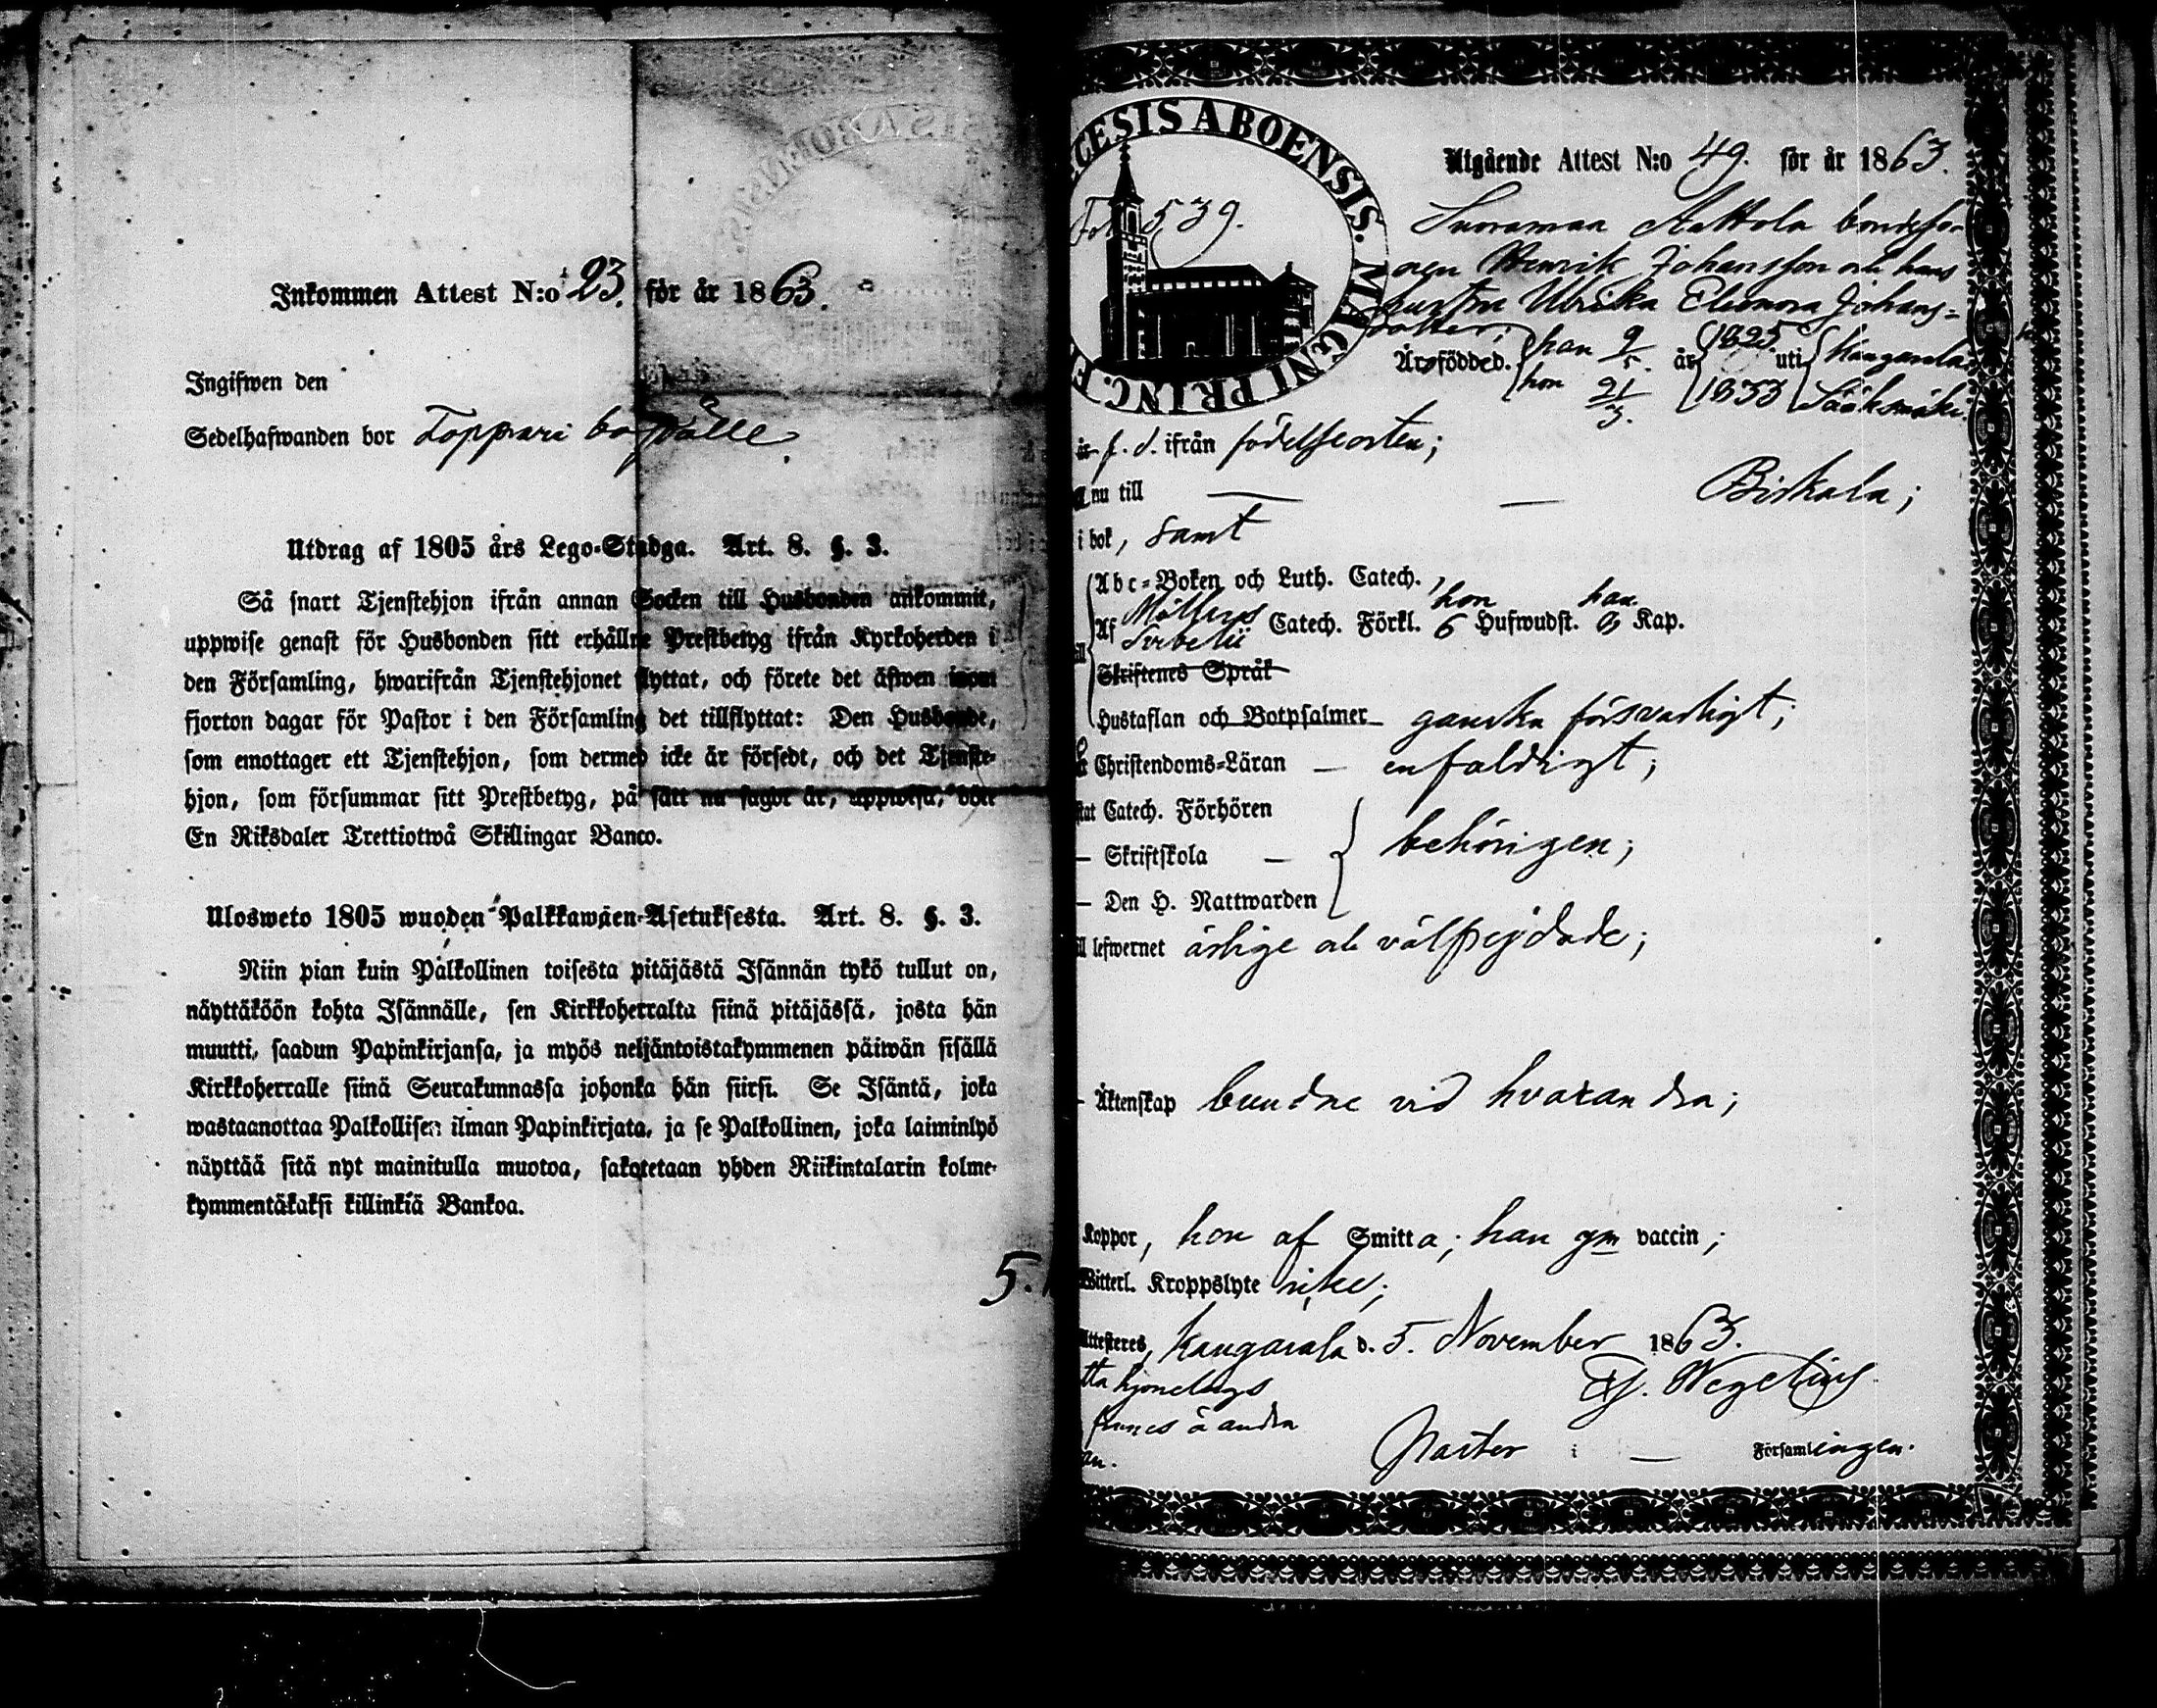 Inkommen Attest N:o 23. för år 1863.
Ingifwen den
Sedelhafwanden bor Toppari
Utdrag af 1805 års Lego-Stadga. Art. 8. §. 3.
Så snart Tjenstehjon ifrån annan Socken till Husbonden ankommit,
uppwise genast för Husbonden sitt erhållne Prestbetyg ifrån Kyrkoherden i
den Församling, hwarifrån Tjenstehjonet flyttat, och förete det äfwen inom
fjorton dagar för Pastor i den Församling det tillflyttat: Den Husbonde,
som emottager ett Tjenstehjon, som dermed icke är försedt, och det Tjenste-
hjon, som försummar sitt Prestbetyg, på sätt nu sagdt är, uppwisa, böte
En Riksdaler Trettiotwå Skillingar Banco.
Ulosweto 1805 wuoden Palkkawäen-Asetuksesta. Art. 8. §. 3.
Niin pian kuin Palkollinen toisesta pitäjästä Isännän tykö tullut on,
näyttäköön kohta Isännälle, sen Kirkkoherralta siinä pitäjässä, josta hän
muutti, saadun Papinkirjansa, ja myös neljäntoistakymmenen päiwän sisällä
Kirkkoherralle siinä Seurakunnassa johonka hän siirsi. Se Isäntä, joka
wastaanottaa Palkollisen ilman Papinkirjata, ja se Palkollinen, joka laiminlyö
näyttää sitä nyt mainitulla muotoa, sakotetaan yhden Riikintalarin kolme-
kymmentäkaksi killinkiä Bankoa.
5.
CESIS ABOENSIS. MAGNI PRINC. F
Fol. 539.
Utgående Attest N:o 49. för år 1863.
Suoramaa Aattola bondeso-
nen Henrik Johansson och hans
hustru Ulrika Eleonora Johans-
dotter;
Är födde d. han 9/5. år 1825 uti Kangasala
hon 21/3. 1833 Sääksmäki.
är f. d. ifrån födelseorten;
nu till — — Birkala;
i bok, samt
Abc-Boken och Luth. Catech.,
Af Möllers Svebelii Catech. Förkl. hon 6 Hufwudst. han Kap.
Skriftenes Språk
Hustaflan och Botpsalmer ganska försvarligt;
Christendoms-Läran — enfaldigt;
Catech. Förhören
— Skriftskola — behörigen;
— Den H. Nattwarden
lefwernet ärlige och välfrejdade;
- Äktenskap bundne vid hvarandra;
Koppor, hon af Smitta; han gm vaccin;
Witterl. Kroppslyte icke;
Attesteres, Kangasala d. 5. November 1863.
hjonelags Wegelius
finnes å andra
Pastor i — Församlingen.